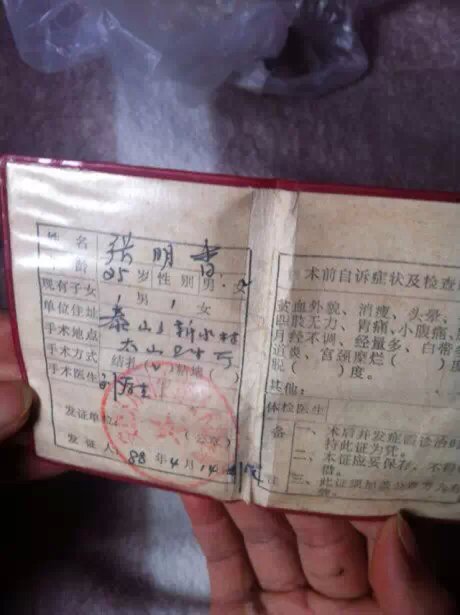 姓名 张明
年龄 25岁 性别 男、女
现有子女 1男1女
单位住址 泰山新水村
手术地点 太山
手术方式 结扎(√)粘堵( )
手术医生
发证单位 (公章)
发证人 88年4月14
术前自诉症状及检查
贫血外貌、消瘦、头晕、
四肢无力、胃痛、小腹痛、
月经不调、经量多、白带多
道炎、宫颈糜烂( )度
脱( )度。
其他:
体检医生
备 一、术后并发症面诊治时
持此证为凭。
二、本证应妥保存、不得
借。
注 三、此证须加盖公章方有
效。